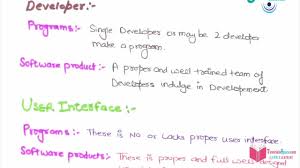 Developer:-
Programs:- Single Developer or may be 2 developer
make a program.
Software product:- A proper and well trained team of
Developers indulge in Developement.
USER INTERFACE:-
Programs:- There is No or Lacks proper user interface.
Software products:- There is proper and full well designed